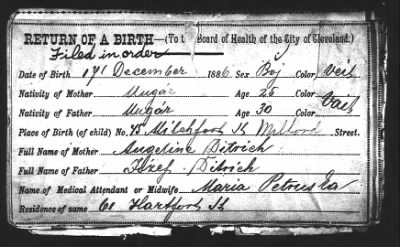 RETURN OF A BIRTH—(To t Board of Health of the City of Cleveland.)
Filed in order
Date of Birth 17t December 1886 Sex Boj Color Veit
Nativity of Mother Ungar Age 25 Color Vait
Nativity of Father Ungar Age 30
Place of Birth (of child) No. 45 Milchfort St Milford Street.
Full Name of Mother Angelina Ditrich
Full Name of Father Jozef Ditrich
Name of Medical Attendant or Midwife Maria Petruska
Residence of same 61 Hartfort St